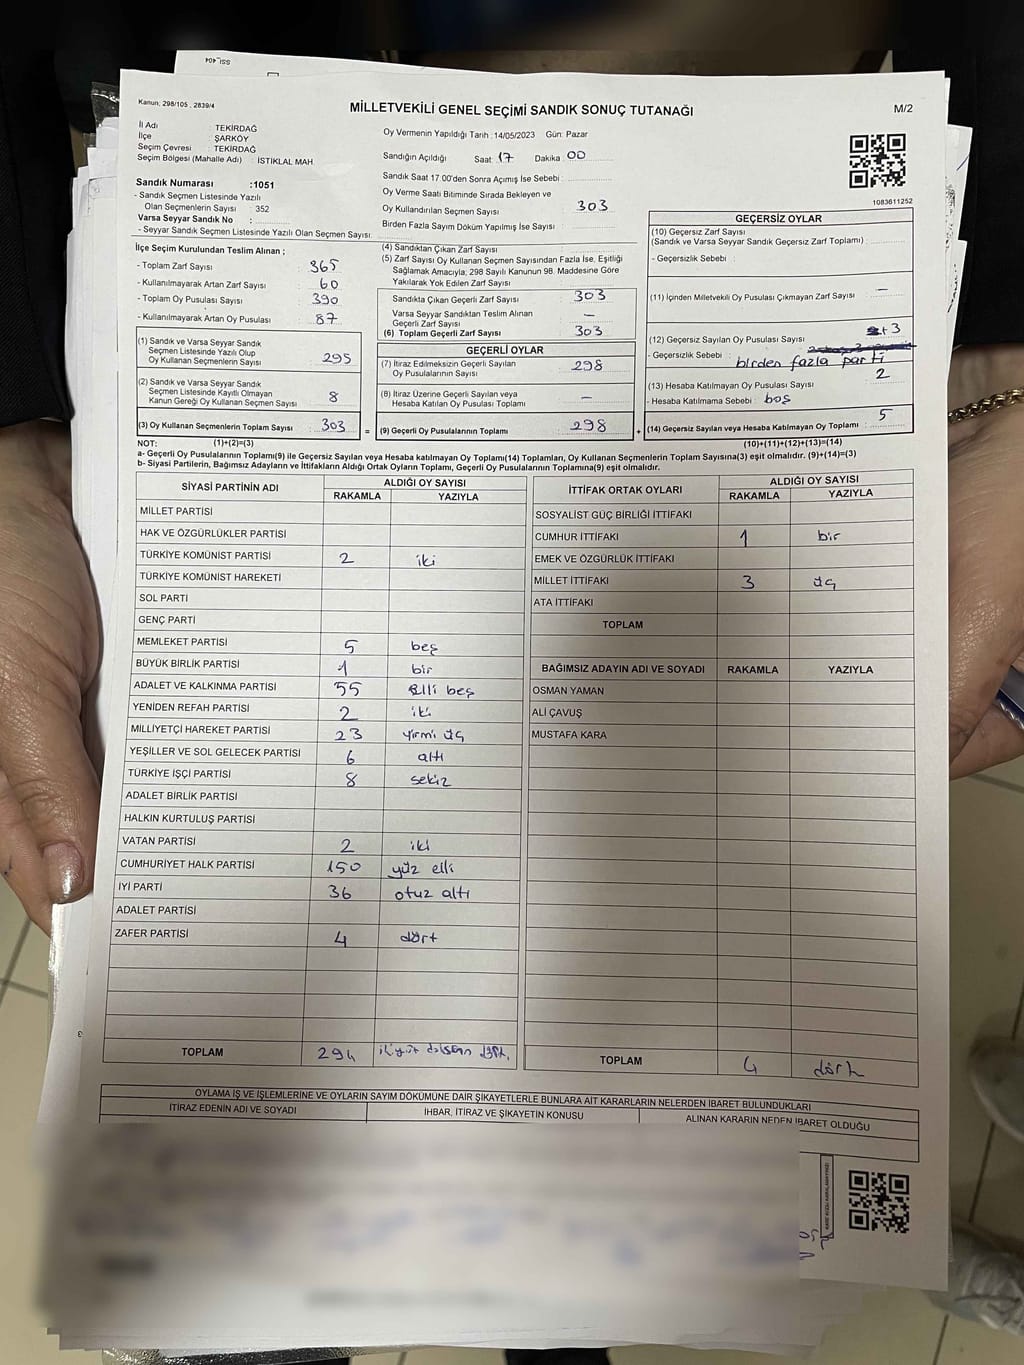 Kanun: 298/105 , 2839/4
MİLLETVEKİLİ GENEL SEÇİMİ SANDIK SONUÇ TUTANAĞI
M/2
İl Adı : TEKİRDAĞ
İlçe : ŞARKÖY
Seçim Çevresi : TEKİRDAĞ
Seçim Bölgesi (Mahalle Adı) : İSTİKLAL MAH.
Sandık Numarası :1051
- Sandık Seçmen Listesinde Yazılı
Olan Seçmenlerin Sayısı : 352
Varsa Seyyar Sandık No :
- Seyyar Sandık Seçmen Listesinde Yazılı Olan Seçmen Sayısı:
Oy Vermenin Yapıldığı Tarih :14/05/2023 Gün: Pazar
Sandığın Açıldığı Saat 17 Dakika 00
Sandık Saat 17.00'den Sonra Açımış İse Sebebi :
Oy Verme Saati Bitiminde Sırada Bekleyen ve
Oy Kullandırılan Seçmen Sayısı 303
Birden Fazla Sayım Döküm Yapılmış İse Sayısı :
1083611252
İlçe Seçim Kurulundan Teslim Alınan ;
- Toplam Zarf Sayısı : 365
- Kullanılmayarak Artan Zarf Sayısı : 60
- Toplam Oy Pusulası Sayısı : 390
- Kullanılmayarak Artan Oy Pusulası : 87
(1) Sandık ve Varsa Seyyar Sandık
Seçmen Listesinde Yazılı Olup
Oy Kullanan Seçmenlerin Sayısı : 295
(2) Sandık ve Varsa Seyyar Sandık
Seçmen Listesinde Kayıtlı Olmayan
Kanun Gereği Oy Kullanan Seçmen Sayısı : 8
(3) Oy Kullanan Seçmenlerin Toplam Sayısı : 303
(4) Sandıktan Çıkan Zarf Sayısı
(5) Zarf Sayısı Oy Kullanan Seçmen Sayısından Fazla İse, Eşitliği
Sağlamak Amacıyla; 298 Sayılı Kanunun 98. Maddesine Göre
Yakılarak Yok Edilen Zarf Sayısı :
Sandıkta Çıkan Geçerli Zarf Sayısı : 303
Varsa Seyyar Sandıktan Teslim Alınan
Geçerli Zarf Sayısı : –
(6) Toplam Geçerli Zarf Sayısı : 303
GEÇERLİ OYLAR
(7) İtiraz Edilmeksizin Geçerli Sayılan
Oy Pusulalarının Sayısı : 298
(8) İtiraz Üzerine Geçerli Sayılan veya
Hesaba Katılan Oy Pusulası Toplamı : –
= (9) Geçerli Oy Pusulalarının Toplamı : 298 +
GEÇERSİZ OYLAR
(10) Geçersiz Zarf Sayısı
(Sandık ve Varsa Seyyar Sandık Geçersiz Zarf Toplamı) :
- Geçersizlik Sebebi :
(11) İçinden Milletvekili Oy Pusulası Çıkmayan Zarf Sayısı : –
(12) Geçersiz Sayılan Oy Pusulası Sayısı : 3
- Geçersizlik Sebebi : birden fazla parti
(13) Hesaba Katılmayan Oy Pusulası Sayısı : 2
- Hesaba Katılmama Sebebi : boş
(14) Geçersiz Sayılan veya Hesaba Katılmayan Oy Toplamı : 5
NOT: (1)+(2)=(3)
(10)+(11)+(12)+(13)=(14)
a- Geçerli Oy Pusulalarının Toplamı(9) ile Geçersiz Sayılan veya Hesaba katılmayan Oy Toplamı(14) Toplamları, Oy Kullanan Seçmenlerin Toplam Sayısına(3) eşit olmalıdır. (9)+(14)=(3)
b- Siyasi Partilerin, Bağımsız Adayların ve İttifakların Aldığı Ortak Oyların Toplamı, Geçerli Oy Pusulalarının Toplamına(9) eşit olmalıdır.
SİYASİ PARTİNİN ADI ALDIĞI OY SAYISI
RAKAMLA YAZIYLA
MİLLET PARTİSİ
HAK VE ÖZGÜRLÜKLER PARTİSİ
TÜRKİYE KOMÜNİST PARTİSİ 2 iki
TÜRKİYE KOMÜNİST HAREKETİ
SOL PARTİ
GENÇ PARTİ
MEMLEKET PARTİSİ 5 beş
BÜYÜK BİRLİK PARTİSİ 1 bir
ADALET VE KALKINMA PARTİSİ 55 elli beş
YENİDEN REFAH PARTİSİ 2 iki
MİLLİYETÇİ HAREKET PARTİSİ 23 yirmi üç
YEŞİLLER VE SOL GELECEK PARTİSİ 6 altı
TÜRKİYE İŞÇİ PARTİSİ 8 sekiz
ADALET BİRLİK PARTİSİ
HALKIN KURTULUŞ PARTİSİ
VATAN PARTİSİ 2 iki
CUMHURİYET HALK PARTİSİ 150 yüz elli
İYİ PARTİ 36 otuz altı
ADALET PARTİSİ
ZAFER PARTİSİ 4 dört
TOPLAM 294
İTTİFAK ORTAK OYLARI ALDIĞI OY SAYISI
RAKAMLA YAZIYLA
SOSYALİST GÜÇ BİRLİĞİ İTTİFAKI
CUMHUR İTTİFAKI 1 bir
EMEK VE ÖZGÜRLÜK İTTİFAKI
MİLLET İTTİFAKI 3 üç
ATA İTTİFAKI
TOPLAM
BAĞIMSIZ ADAYIN ADI VE SOYADI RAKAMLA YAZIYLA
OSMAN YAMAN
ALİ ÇAVUŞ
MUSTAFA KARA
TOPLAM 4 dört
OYLAMA İŞ VE İŞLEMLERİNE VE OYLARIN SAYIM DÖKÜMÜNE DAİR ŞİKAYETLERLE BUNLARA AİT KARARLARIN NELERDEN İBARET BULUNDUKLARI
İTİRAZ EDENİN ADI VE SOYADI İHBAR, İTİRAZ VE ŞİKAYETİN KONUSU ALINAN KARARIN NEDEN İBARET OLDUĞU